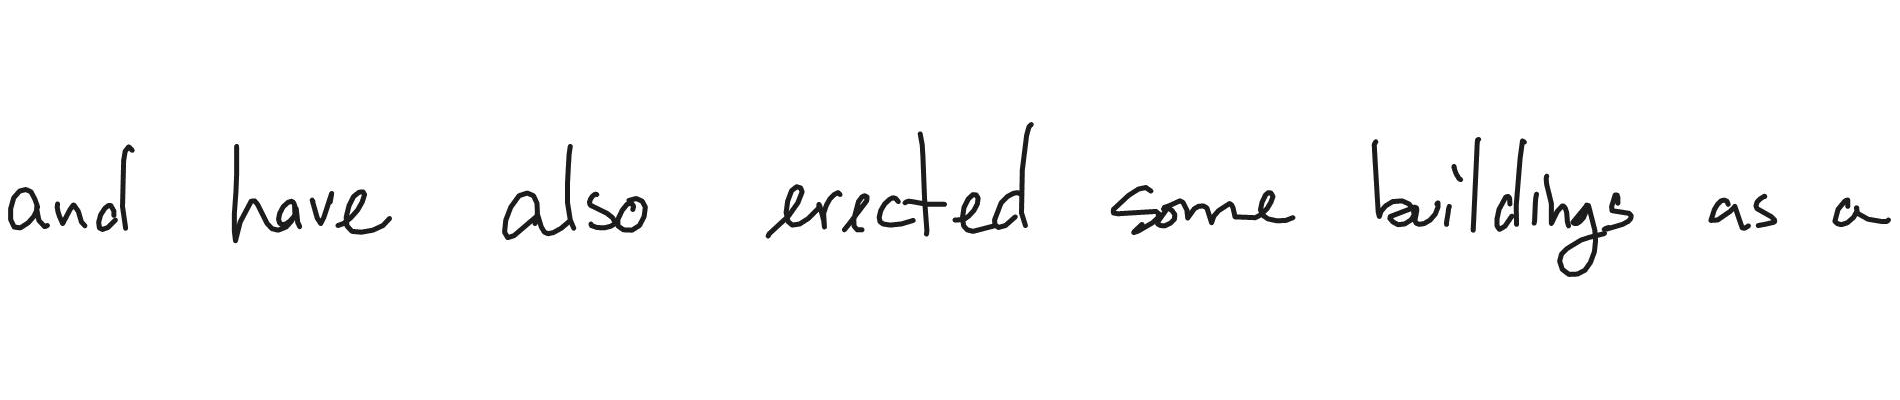 and have also erected some buildings as a